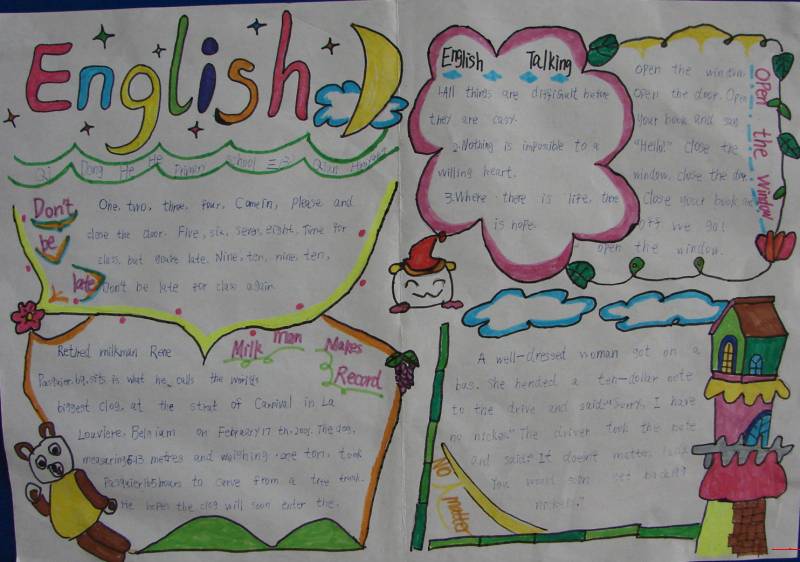 English
Qi Dong He He Primary School 三
Don't
be
late
One, two, three, four, Come in, Please and
close the door. Five, six, seven, eight, Time for
class, but you're late. Nine, ten, nine, ten,
Don't be late for class again
Milk man Makes
Record
Retired milkman Rene
Pasquier sits is what he calls the world's
biggest clog, at the strat of Carnival in La
Louviere, Belgium on February 17 th, The clog,
measuring 5.13 metres and weighing one ton, took
Pasquier 165 hours to carve from a tree trunk.
He hopes the clog will soon enter the.
English Talking
1.All things are difficult before
they are easy.
2.Nothing is impossible to a
willing heart.
3.Where there is life, there
is hope.
Open the window
Open the window.
Open the door. Open
your book and say
"Hello!" Close the
window, close the door.
Close your book and
off we go!
open the window.
No matter
A well-dressed woman got on a
bus. She handed a ten-dollar note
to the drive and said:"Sorry, I have
no nickes." The driver took the note
and said:"It doesn't matter,
You would soon get back
nickels."